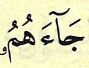 جَآءَهُمُ